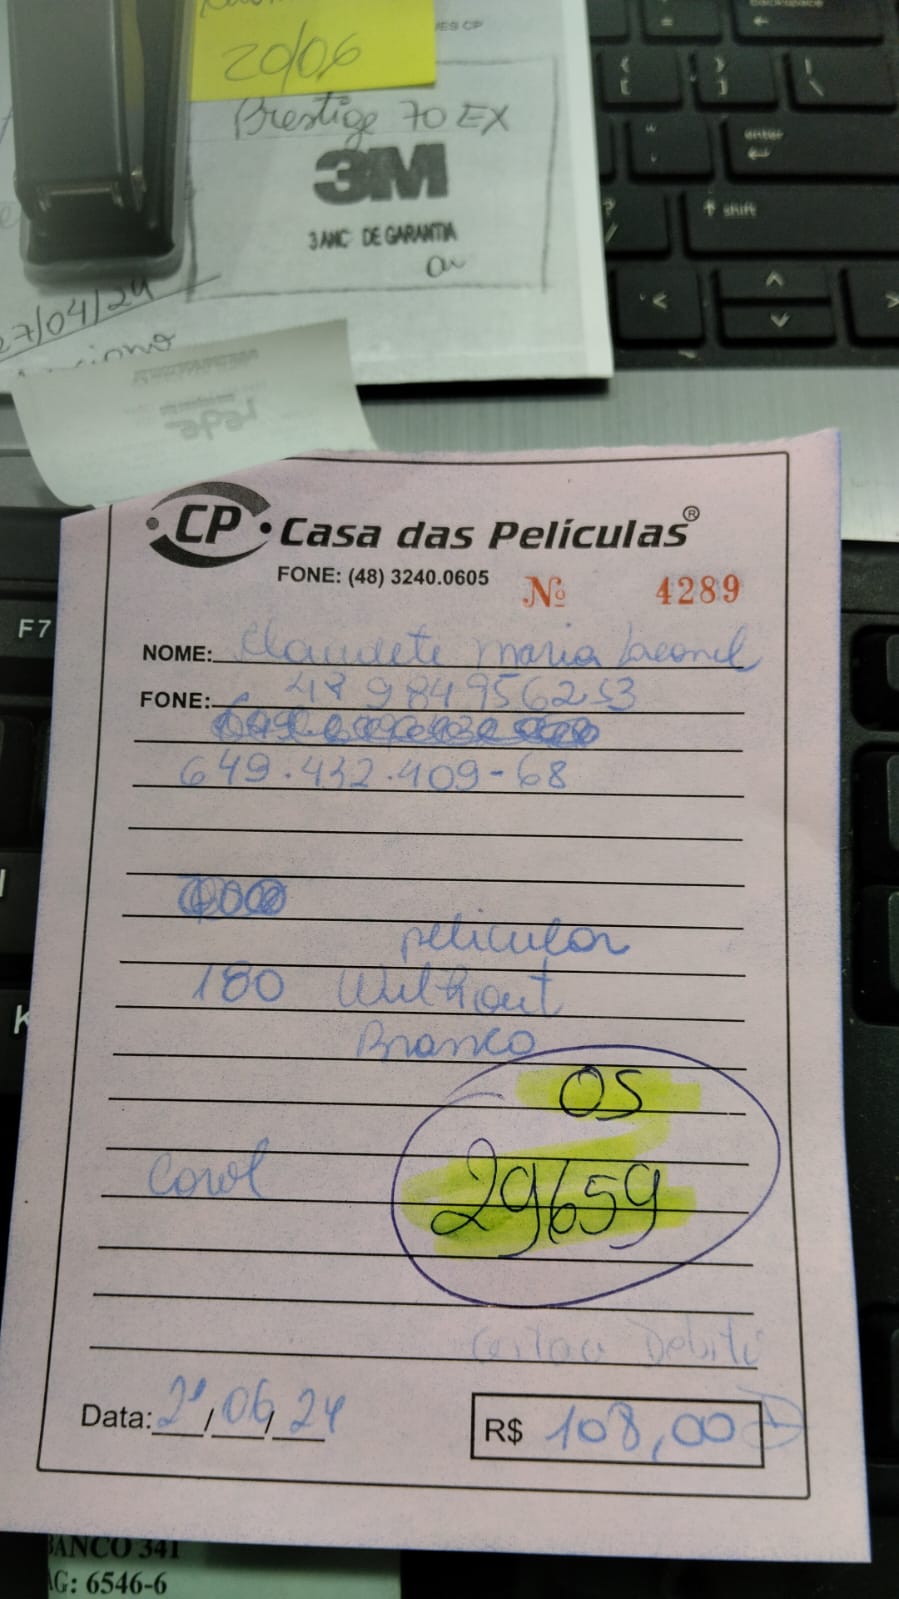 backspace
enter
shift
20/06
ES CP
Prestige 70 EX
3M
3 ANC DE GARANTIA
27/04/24
rede
CP Casa das Películas®
FONE: (48) 3240.0605
Nº 4289
NOME: Claudete Maria Leonel
FONE: 48 984956253
649.432.409-68
pelicular
180 Without
Branco
OS
29659
Carol
Cartao Debiti
Data: 21/06/24
R$ 108,00
BANCO 341
AG: 6546-6
F7
K